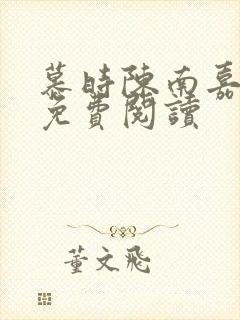 慕時陳南嘉
免費閱讀
董文飛